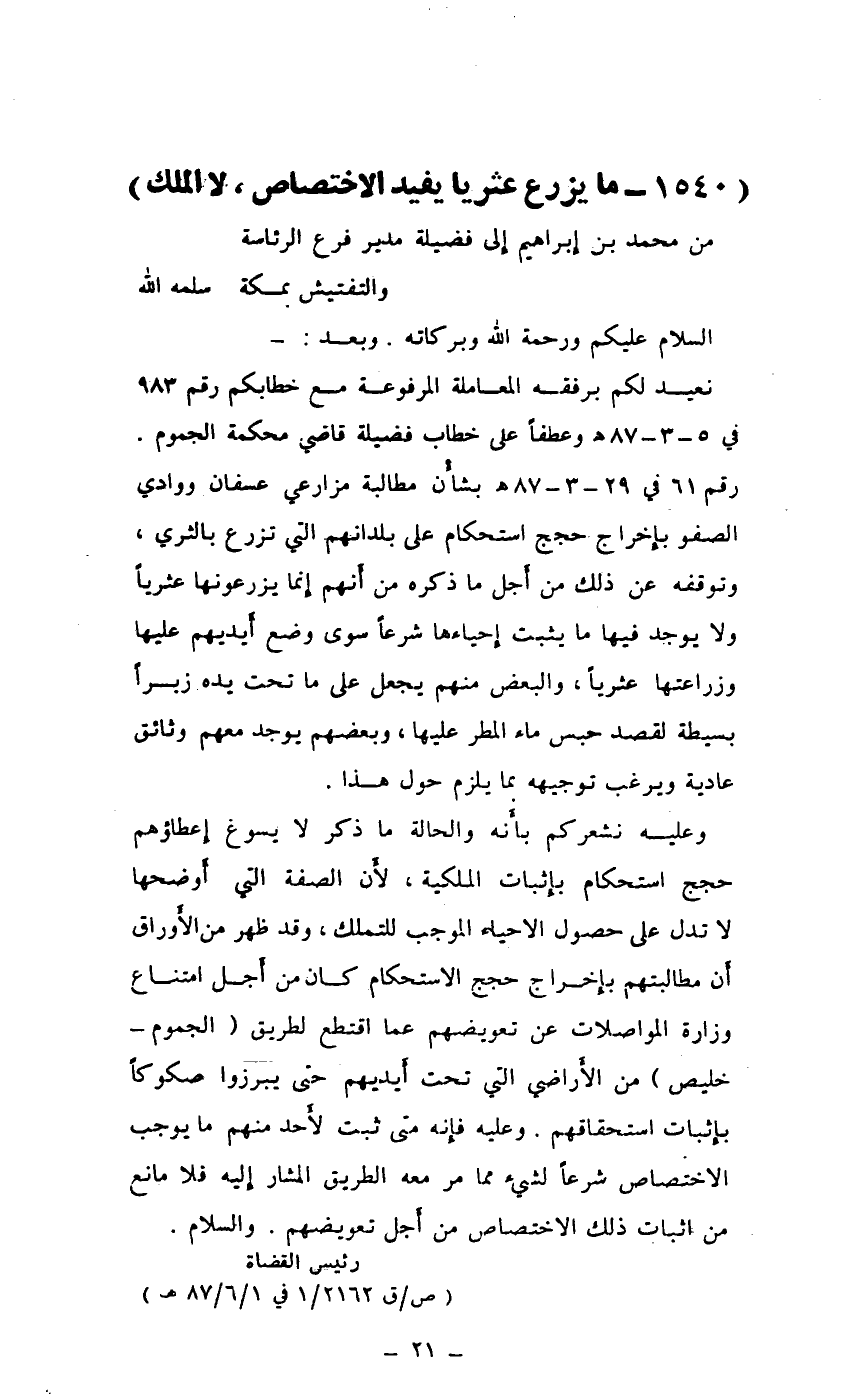 ( ١٥٤٠ ــ ما يزرع عثريا يفيد الاختصاص ، لا الملك )
من محمد بن إبراهيم إلى فضيلة مدير فرع الرئاسة
والتفتيش بمـكة سلمه الله
السلام عليكم ورحمة الله وبركاته . وبعـد : ــ
نعيـد لكم برفقـه المعـاملة المرفوعـة مـع خطابكم رقم ٩٨٣
في ٥ ــ ٣ ــ ٨٧هـ وعطفاً على خطاب فضيلة قاضي محكمة الجموم .
رقم ٦١ في ٢٩ ــ ٣ ــ ٨٧هـ بشأن مطالبة مزارعي عسفان ووادي
الصفو بإخراج حجج استحكام على بلدانهم التي تزرع بالثري ،
وتوقفه عن ذلك من أجل ما ذكره من أنهم إنما يزرعونها عثرياً
ولا يوجد فيها ما يثبت إحياءها شرعاً سوى وضع أيديهم عليها
وزراعتها عثرياً ، والبعض منهم يجعل على ما تحت يده زبـراً
بسيطة لقصد حبس ماء المطر عليها ، وبعضهم يوجد معهم وثائق
عادية ويرغب توجيهه بما يلزم حول هـذا .
وعليـه نشعركم بأنه والحالة ما ذكر لا يسوغ إعطاؤهم
حجج استحكام بإثبات الملكية ، لأن الصفة التي أوضحها
لا تدل على حصول الاحياء الموجب للتملك ، وقد ظهر من الأوراق
أن مطالبتهم بإخـراج حجج الاستحكام كـان من أجـل امتنـاع
وزارة المواصلات عن تعويضهم عما اقتطع لطريق ( الجموم ــ
خليص ) من الأراضي التي تحت أيديهم حتى يبرزوا صكوكاً
بإثبات استحقاقهم . وعليه فإنه متى ثبت لأحد منهم ما يوجب
الاختصاص شرعاً لشيء مما مر معه الطريق المشار إليه فلا مانع
من اثبات ذلك الاختصاص من أجل تعويضهم . والسلام .
رئيس القضاة
( ص/ق ١/٢١٦٢ في ٨٧/٦/١ هـ )
ــ ٢١ ــ